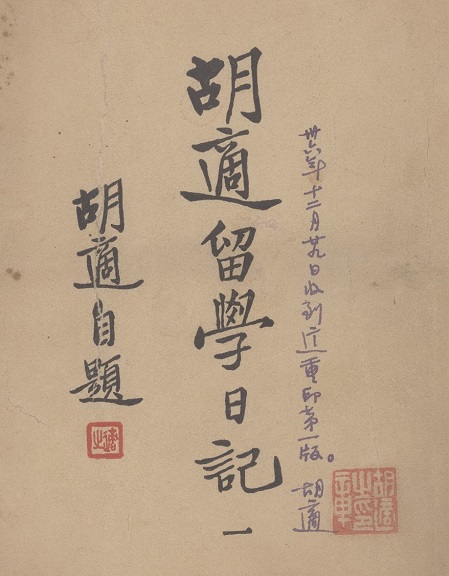 卅六年十二月廿九日收到这重印第一版。
胡適
胡適之印章
胡適留學日記 一
胡適自題
適之